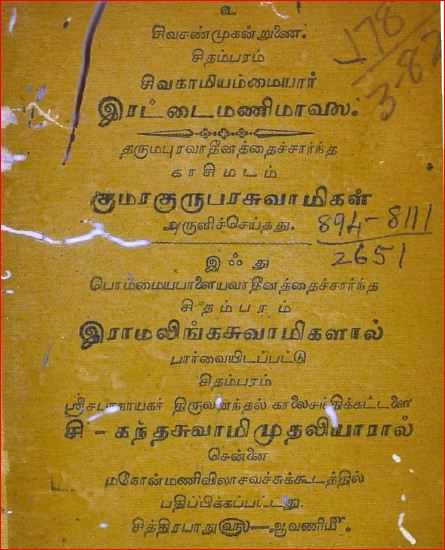 உ
சிவசண்முகன்றுணை.
சிதம்பரம்
சிவகாமியம்மையார்
இரட்டைமணிமாலை.
தருமபுரவாதீனத்தைச்சார்ந்த
காசிமடம்
குமரகுருபரசுவாமிகள்
அருளிச்செய்தது.
இஃது
பொம்மையபாளையவாதீனத்தைச்சார்ந்த
சிதம்பரம்
இராமலிங்கசுவாமிகளால்
பார்வையிடப்பட்டு
சிதம்பரம்
ஸ்ரீசபாநாயகர் திருவனந்தல் காலைசந்திக்கட்டளை
சி - கந்தசுவாமி முதலியாரால்
சென்னை
மகோன்மணிவிலாசவச்சுக்கூடத்தில்
பதிப்பிக்கப்பட்டது.
சித்திரபாநு௵—ஆவணி௴.
178
3-87
894-8111
2651